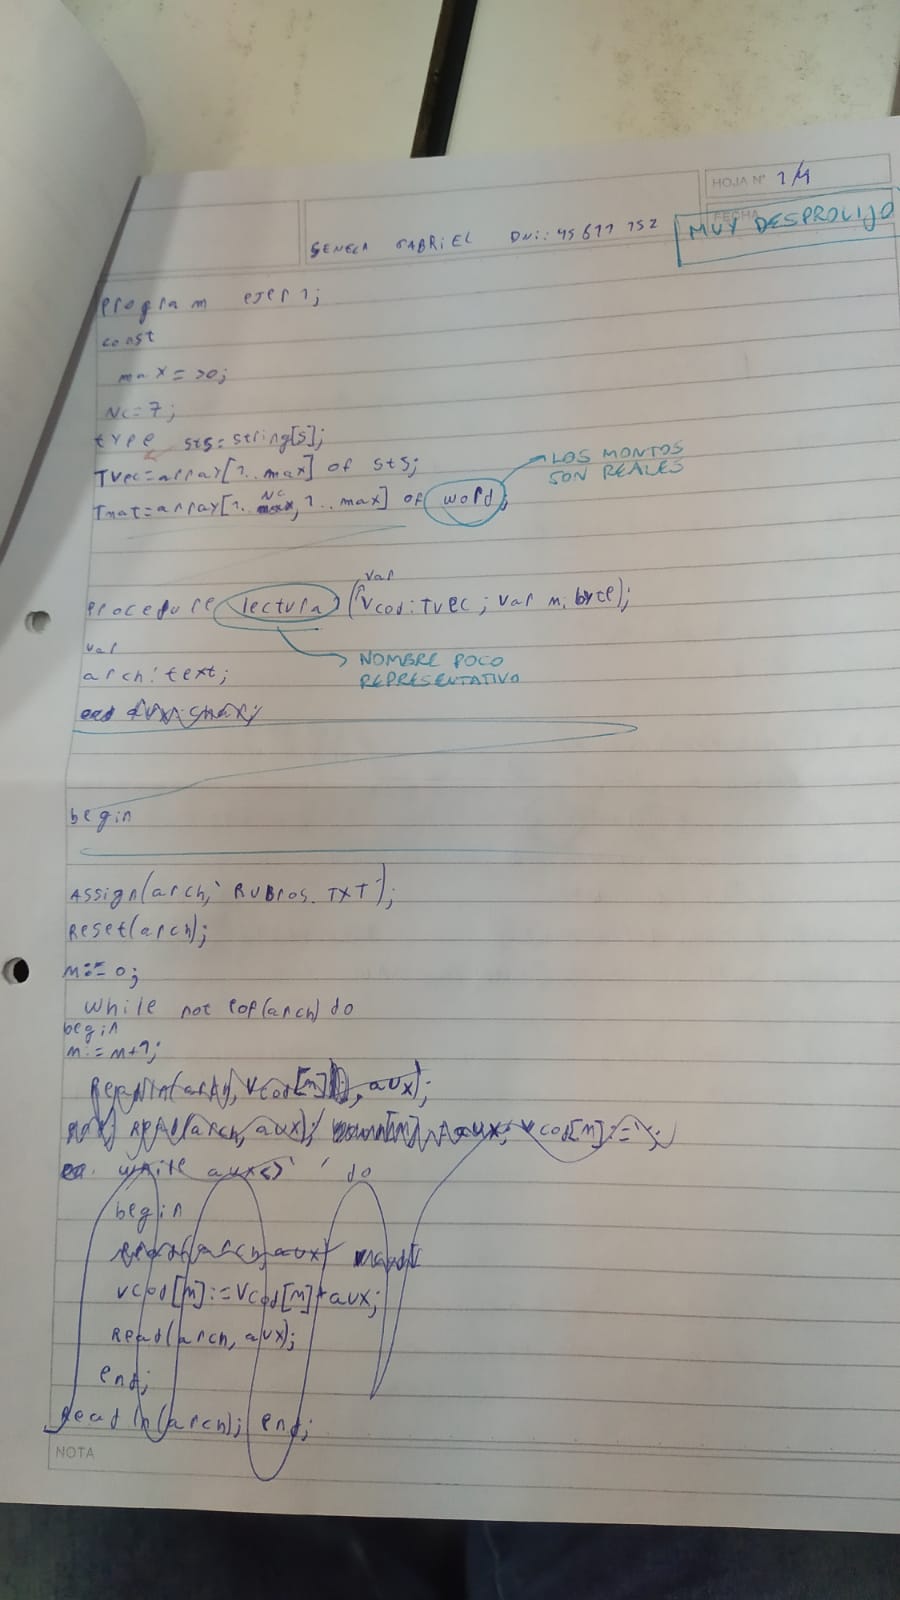 HOJA N° 1/4
FECHA
MUY DESPROLIJO
SENECA GABRIEL DNI: 45 677 752
program ejer 1;
const
max = 20;
NC = 7;
type st5 = string[5];
TVec = array[1..max] of st5;
LOS MONTOS
SON REALES
Tmat = array[1..NC, 1..max] of word;
var
procedure lectura (Vcod: TVec; var m: byte);
NOMBRE POCO
REPRESENTATIVO
var
arch: text;
begin
Assign(arch, 'RUBROS.TXT');
Reset(arch);
m:= 0;
while not eof(arch) do
begin
m:= m+1;
Readln(arch, Vcod[m], aux);
Read(arch, aux); Vcod[m]:='';
while aux<>' ' do
begin
Vcod[m]:=Vcod[m]+aux;
Read(arch, aux);
end;
Readln(arch); end;
NOTA